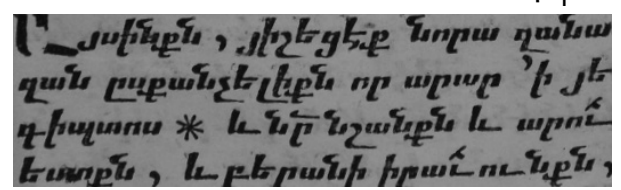 Այսինքն , յիշեցէք նորա զանա
զան ըսքանչելիքն որ արար ՚ի յե
գիպտոս ※ և նր̄ նշանքն և արու̄
եստքն , և բերանի իրաւ̄ունքն ,